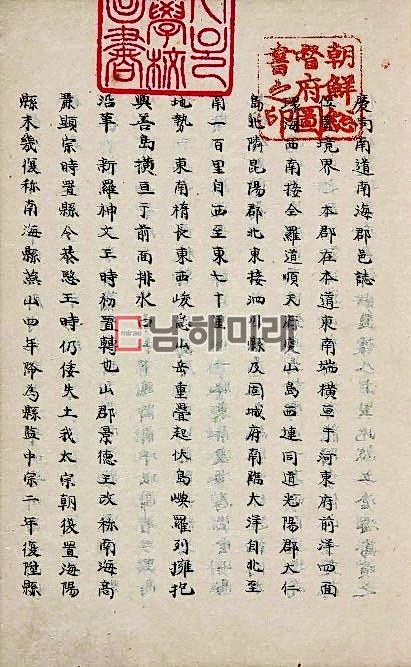 慶尙南道南海郡邑誌
境界 本郡在本道東南端橫亘于河東府前洋四面
環海西南接全羅道順天府 山島西連同道光陽郡大仁
島北隣昆陽郡北東接泗川縣及固城府南臨大洋自北至
南一百里自西至東七十里
地勢 東南楕長東西峻急山岳重疊起伏島嶼羅列擁抱
興善島橫亘于前面排水口
沿革 新羅神文王時初置轉也山郡景德王改称南海高
麗顯宗時置縣令恭愍王時仍倭失土我太宗朝復置海陽
縣未幾復称南海縣燕山四年降為縣監中宗二年復陞縣
朝鮮總
督府圖
書之印
學校
圖書
mirae
남해미래